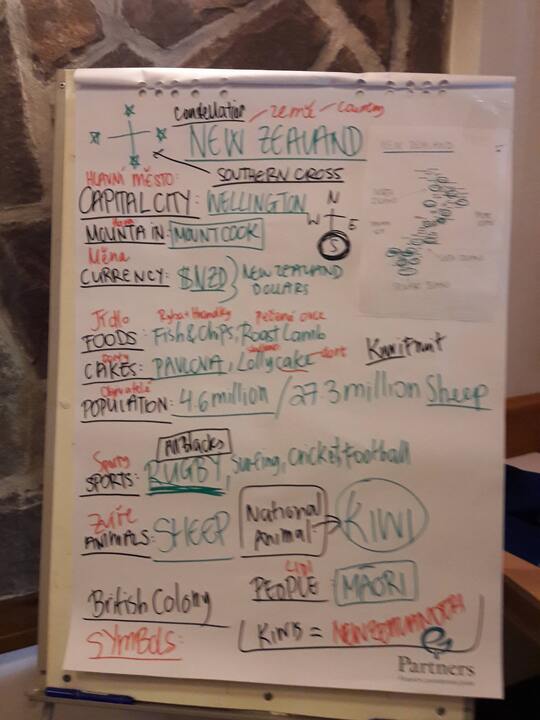 Constellation země - country
NEW ZEALAND
SOUTHERN CROSS
HLAVNÍ MĚSTO:
CAPITAL CITY: WELLINGTON
N
W E
S
Hora
MOUNTAIN: MOUNT COOK
Měna
CURRENCY: $NZD } NEW ZEALAND DOLLARS
NEW ZEALAND
Jídlo Ryba + Hranolky Pečené ovce
FOODS: Fish & Chips, Roast Lamb
Kiwifruit
Dorty dort
CAKES: PAVLOVA, Lollycake
Obyvatelé
POPULATION: 4.6 million / 27.3 million Sheep
All Blacks
Sporty
SPORTS: RUGBY, Surfing, Cricket, Football
Zvíře
ANIMALS: SHEEP
National Animal
KIWI
LIDI
PEOPLE: MĀORI
British Colony
KIWIS = NEW ZEALANDERI
SYMBOLS:
Partners